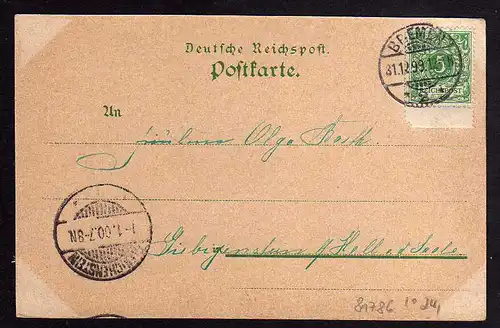 Deutsche Reichspost.
Postkarte.
BREMEN
31.12.99. 5
5
REICHSPOST
An
Fräulein Olga
1.1.00. 7-8N.
GIEBICHENSTEIN
Giebichenstein / Halle a/d Saale
81786